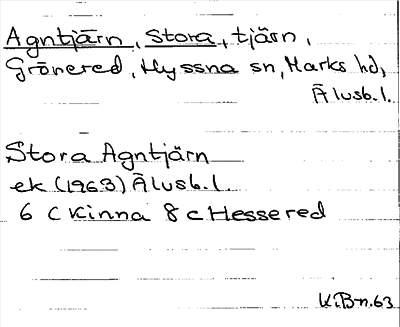 Agntjärn, Stora, tjärn,
Grönered, Hyssna sn, Marks hd,
Älvsb. l.
Stora Agntjärn
ek (1963) Älvsb. l.
6 c Kinna 8 c Hessered